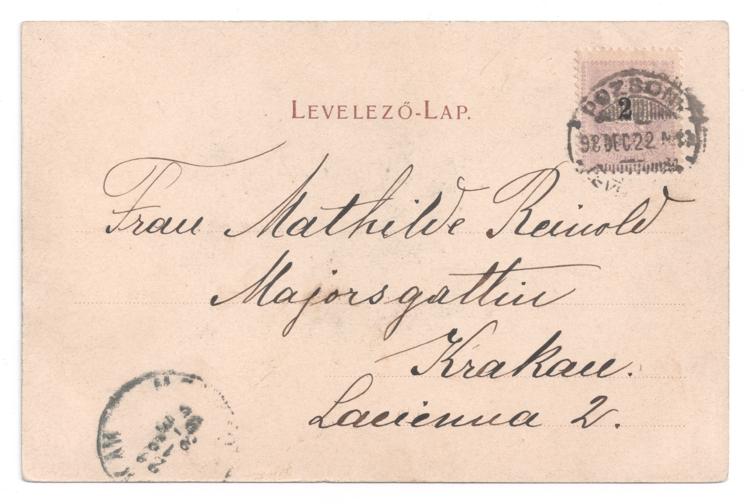 LEVELEZŐ-LAP.
POZSONY
2
98 DEC 22
Frau Mathilde Reinold
Majorsgattin
Krakau.
Lacienna 2.